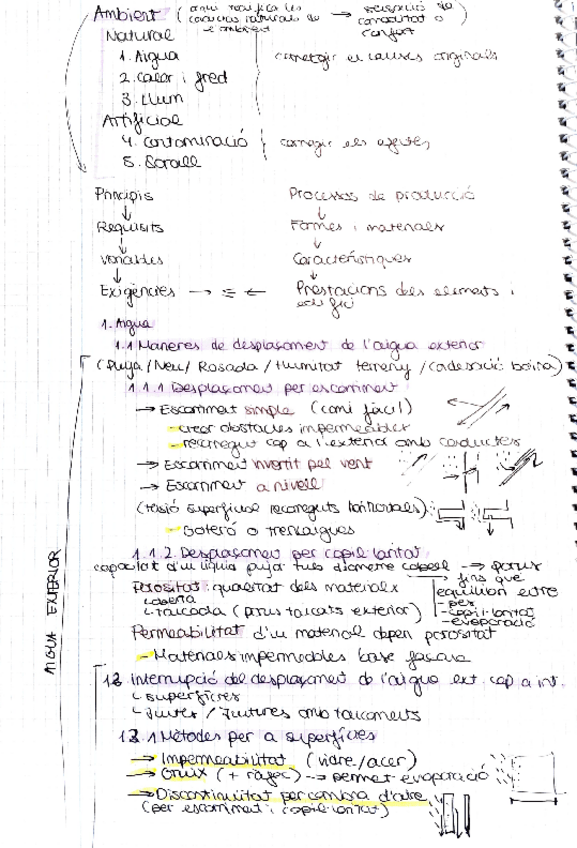 Ambient (aquí modifica les → sensació de
condicions naturals de comoditat o
l'ambient confort)
Natural
1. Aigua corregir els causes originals
2. calor i fred
3. Llum
Artificial
4. Contaminació corregir els efectes
5. Soroll
Principis Processos de producció
↓ ↓
Requisits Formes i materials
↓ ↓
Variables Característiques
↓ ↓
Exigències → ≡ ← Prestacions dels elements i
edifici
1. Aigua
1.1 Maneres de desplaçament de l'aigua exterior
(Pluja/Neu/Rosada/Humitat terreny/Condensació boira)
1.1.1 Desplaçament per escorriment
→ Escorriment simple (camí fàcil)
- crear obstacles impermeables
- recorregut cap a l'exterior amb conductes
→ Escorriment invertit pel vent
→ Escorriment a nivell
(tensió superficial recorreguts horitzontals)
- Goteró o trencaigues
1.1.2 Desplaçament per capil·laritat
capacitat d'un líquid pujar tubs diàmetre capil·l → porus
Porositat: qualitat dels materials fins que
oberta equilibri entre
- tancada (porus tancats exterior) - pes
- capil·laritat
- evaporació
Permeabilitat d'un material depen porositat
- Materials impermeables base façana
AIGUA EXTERIOR
1.2 Interrupció del desplaçament de l'aigua ext. cap a int.
- superfícies
- Juntes / Juntures amb tancaments
1.2.1 Mètodes per a superfícies
→ Impermeabilitat (vidre/acer)
→ Gruix (+ ràfec) → permet evaporació
→ Discontinuïtat per cambra d'aire
(per escorriment i capil·laritat)